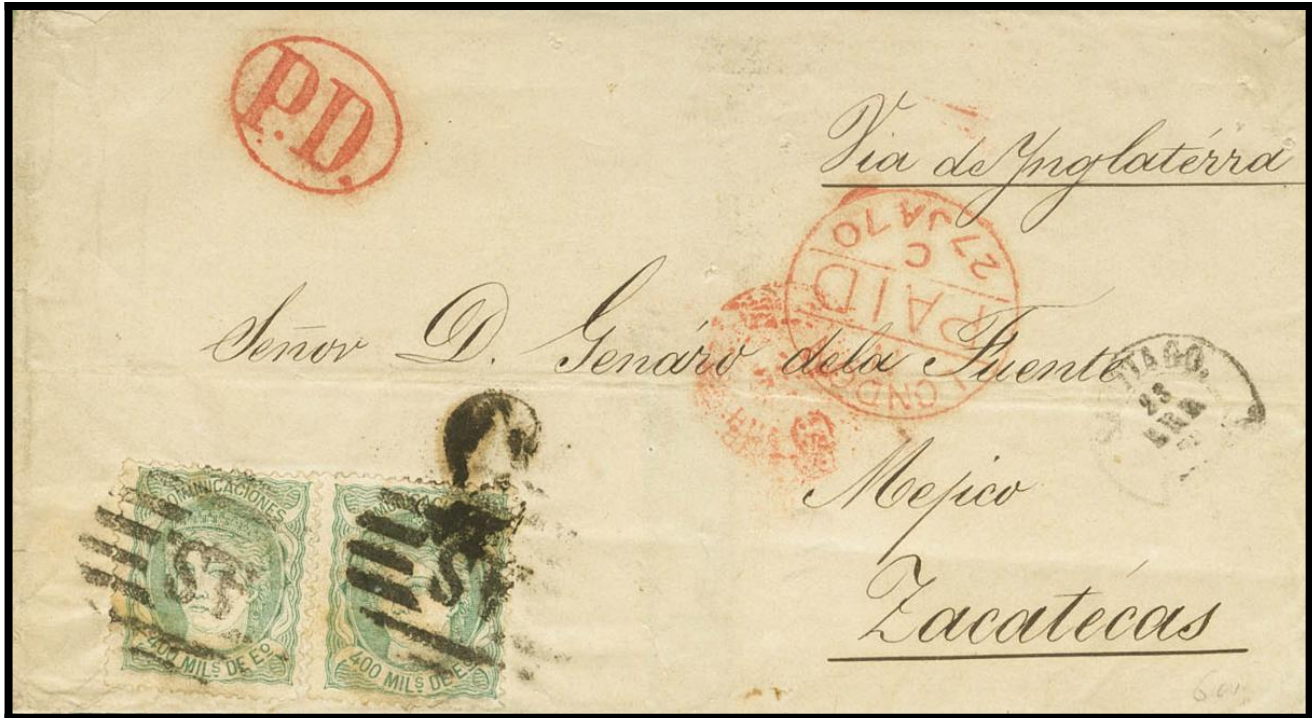 P.D.
Via de Ynglatérra
LONDON
PAID
C
27 JA 70
Señor D. Genáro dela Fuente
23
Mejico
Zacatécas
COMUNICACIONES
400 MILS DE Eo
400 MILS DE Es
2